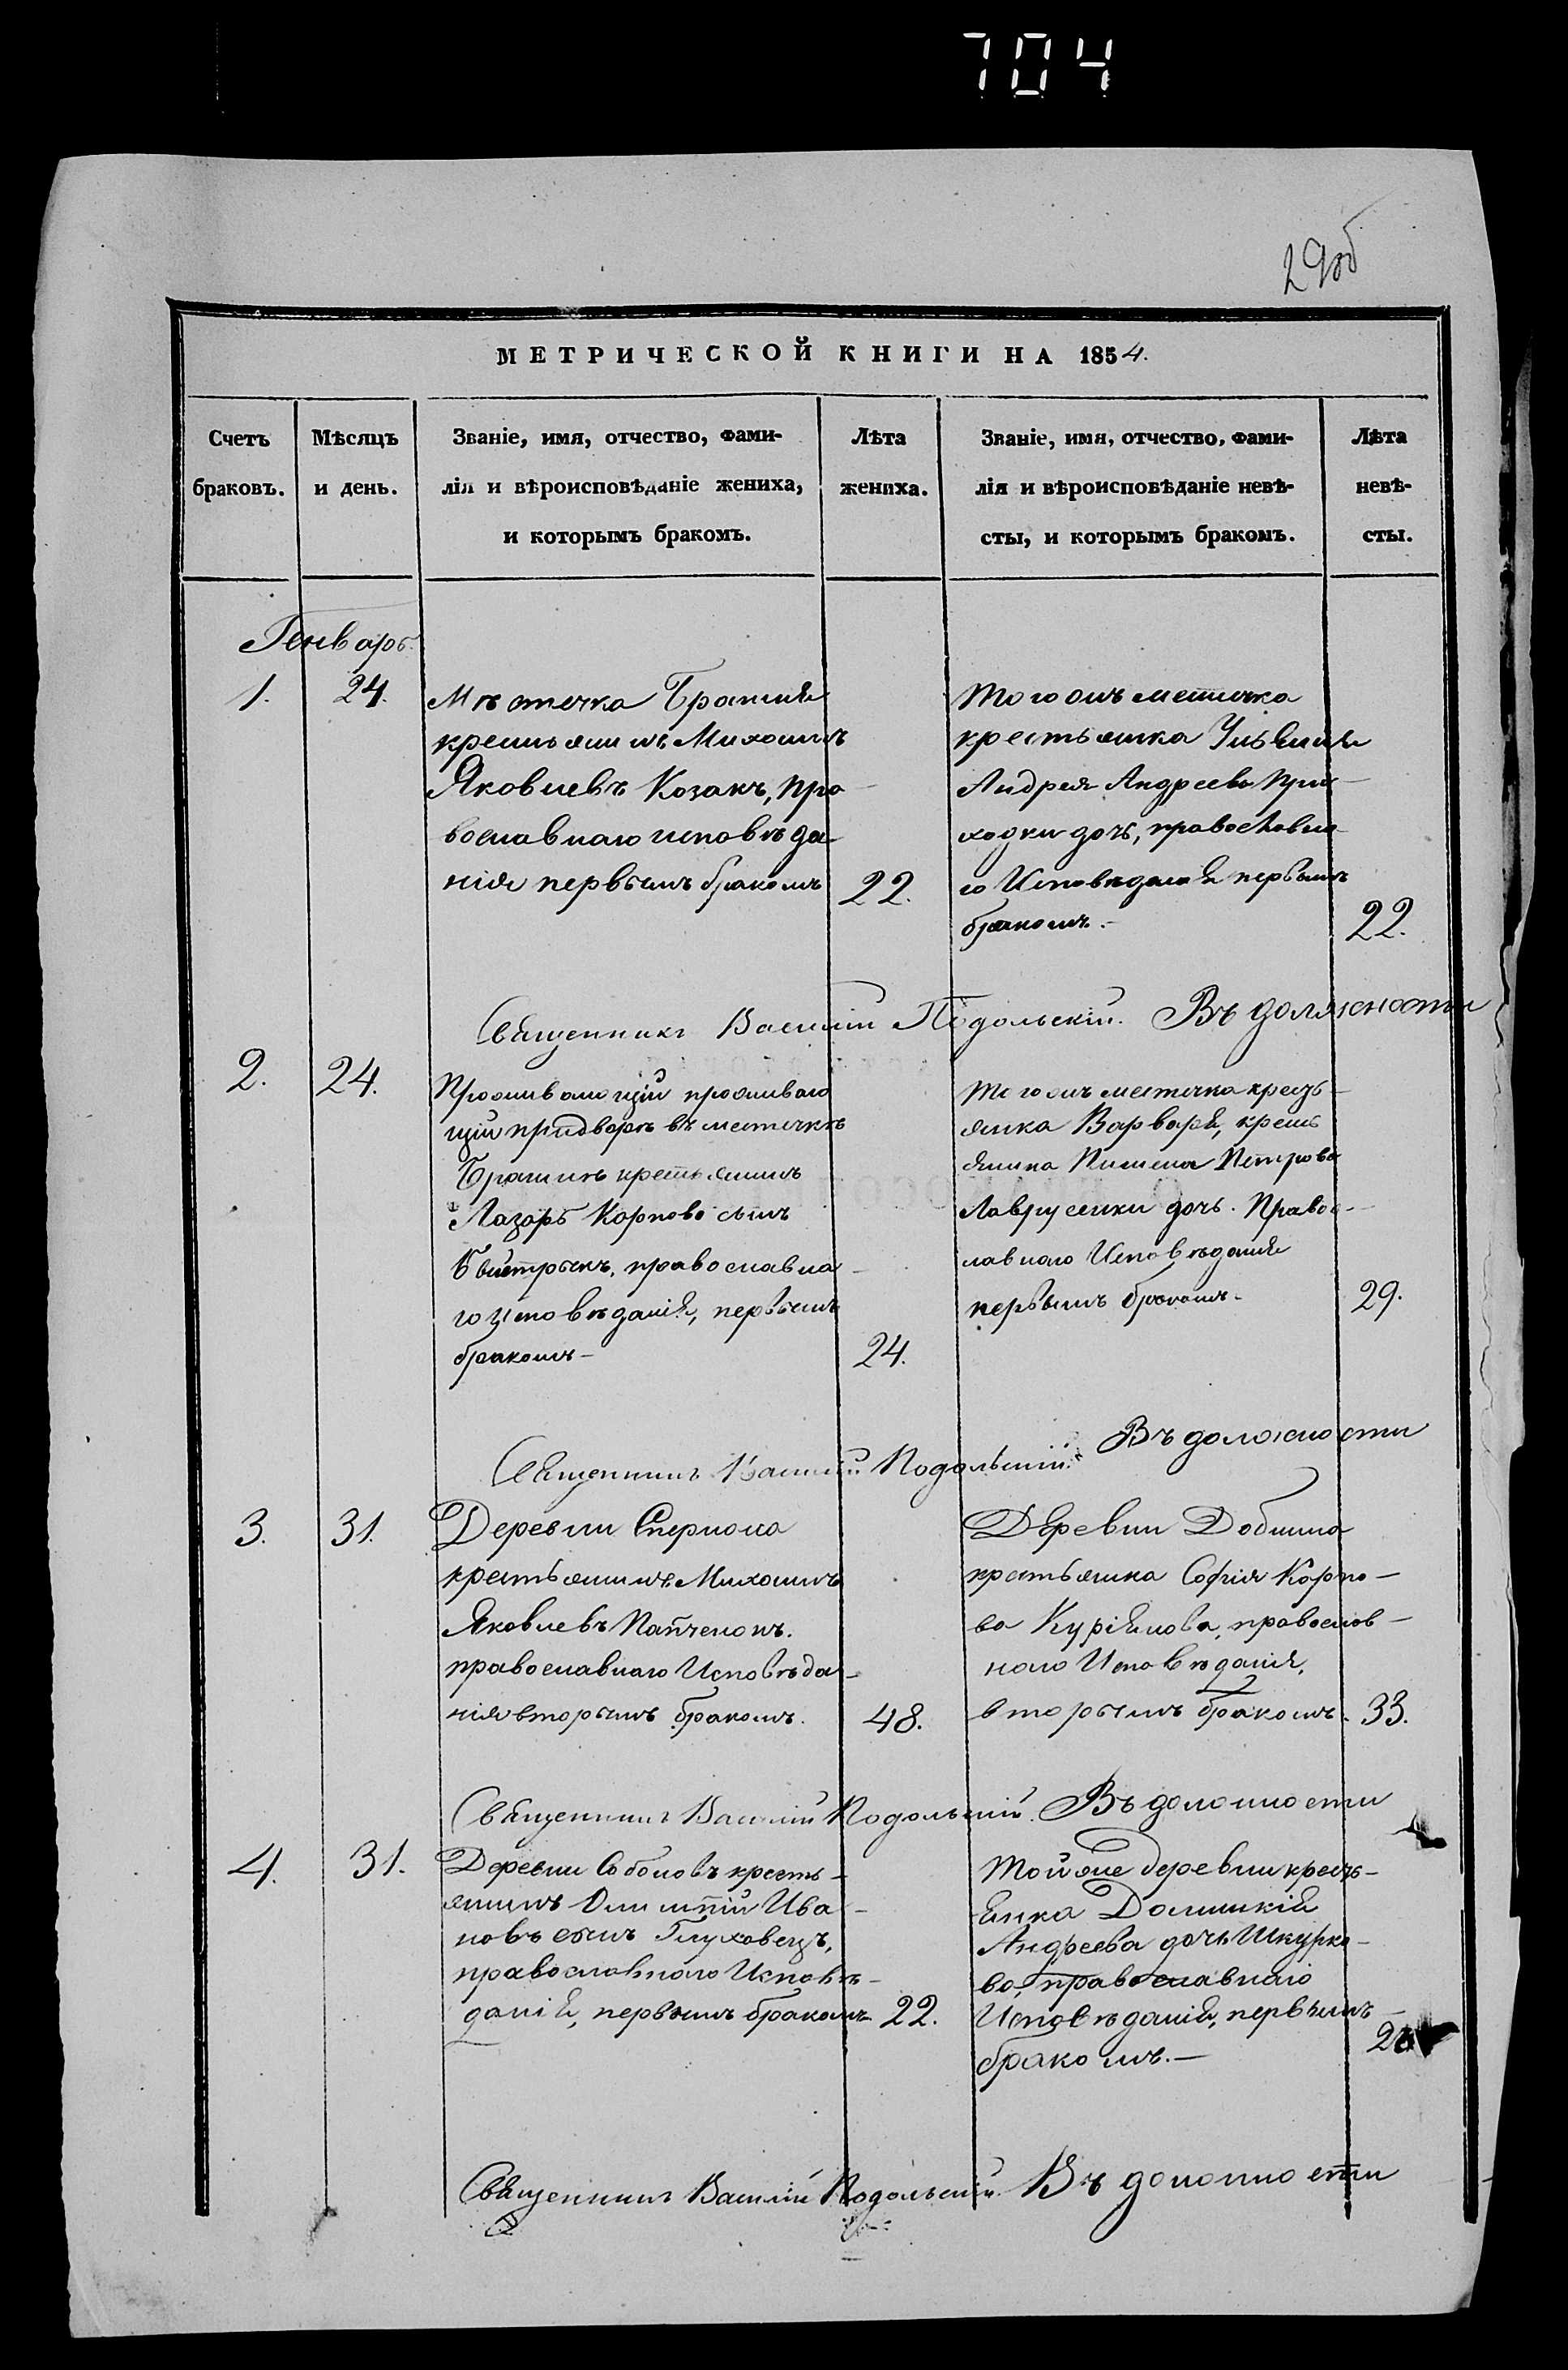 704
29об
МЕТРИЧЕСКОЙ КНИГИ НА 1854.
Счетъ
браковъ.
Мѣсяцъ
и день.
Званіе, имя, отчество, фами-
лія и вѣроисповѣданіе жениха,
и которымъ бракомъ.
Лѣта
жениха.
Званіе, имя, отчество, фами-
лія и вѣроисповѣданіе невѣ-
сты, и которымъ бракомъ.
Лѣта
невѣ-
сты.
Генварь
1. 24.
Мѣстечка Брагиня
крестьянинъ Михаилъ
Яковлевъ Козакъ, пра-
вославнаго исповѣда-
нія первымъ бракомъ 22.
Тогожъ местечка
крестьянка Ульянія
Андрея Андреева При-
ходки дочь, православна-
го Исповѣданія первымъ
бракомъ.- 22.
Священникъ Василій Подольскій. Въ должности
2. 24.
Проживающій проживаю
щій придворѣ въ местечкѣ
Брагинѣ крестьянинъ
Лазарь Карпово сынъ
православна-
го исповѣданія, первымъ
бракомъ- 24.
Тогожъ местечка кресть-
янка Варвара, кресть
янина Пимена Петрова
Лавруенки дочь. Правос-
лавнаго Исповѣданія
первымъ бракомъ- 29.
Священникъ Василій Подольскій. Въ должности
3. 31.
Деревни Спернжа
крестьянинъ Михаилъ
Яковлевъ Панченокъ.
православнаго Исповѣда-
нія вторымъ бракомъ. 48.
Деревни
крестьянка Софія Карпо-
ва православ-
наго Исповѣданія,
вторымъ бракомъ. 33.
Священникъ Василій Подольскій. Въ должности
4. 31.
Деревни Соболовъ кресть-
янинъ Ива-
новъ сынъ Глуховецъ,
православнаго Исповѣ-
данія, первымъ бракомъ 22.
Тойже деревни кресть-
янка Домникія
Андреева дочь Шкурко-
ва, православнаго
Исповѣданія, первымъ
бракомъ.-
Священникъ Василій Подольскій. Въ должности